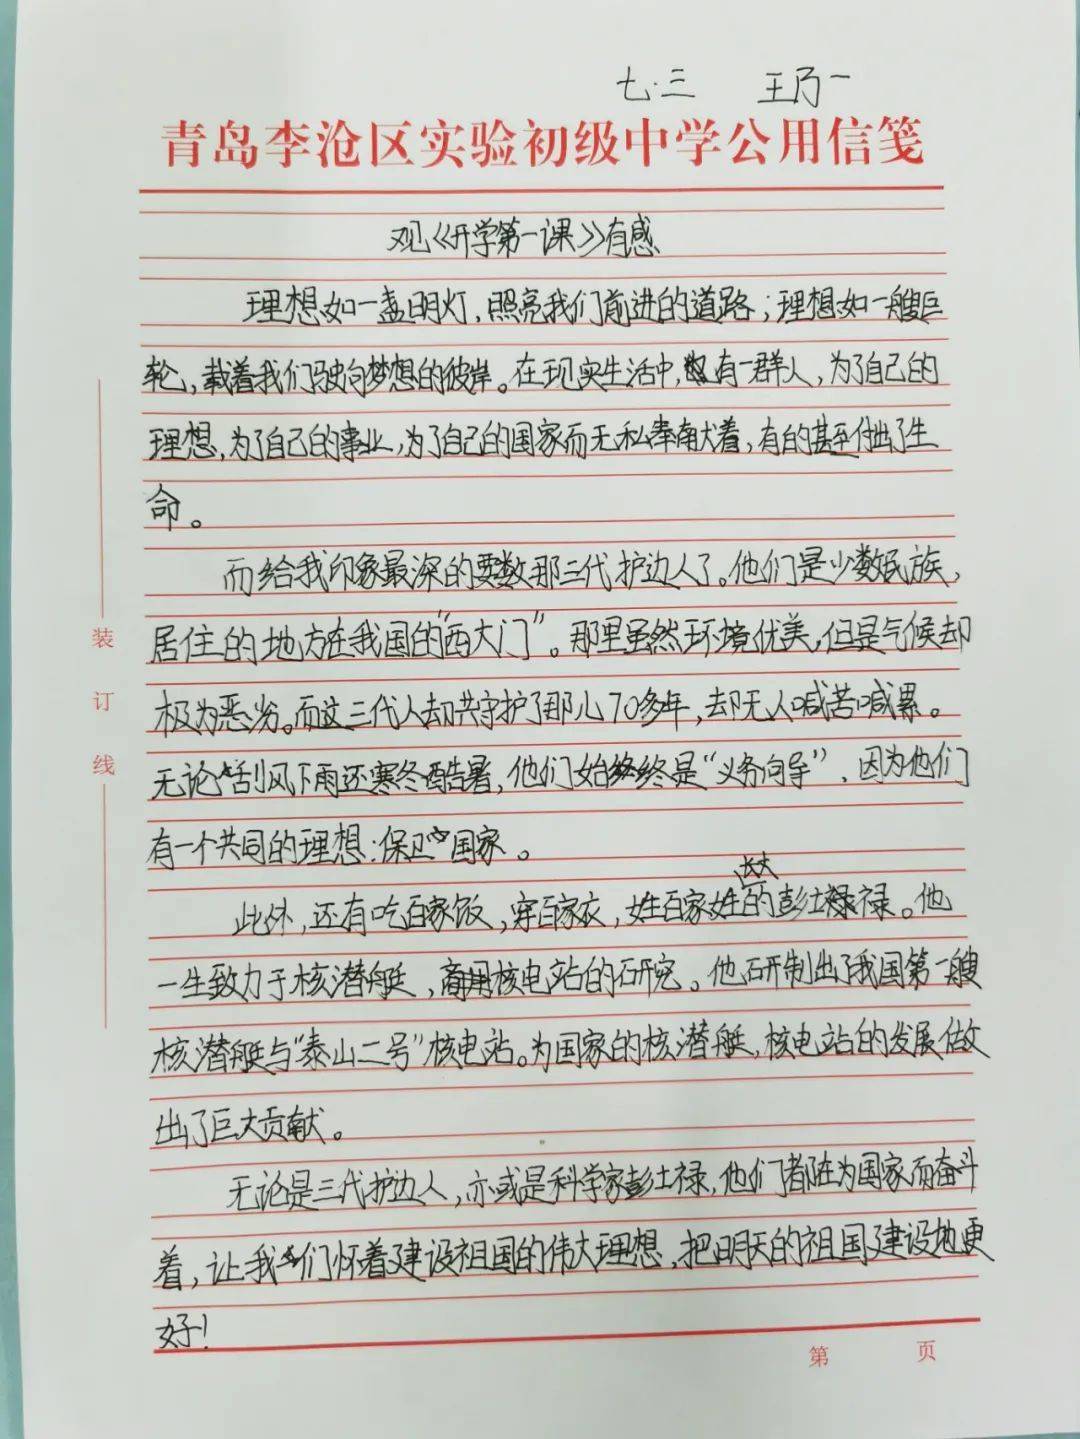 七.三 王乃一
青岛李沧区实验初级中学公用信笺
观《开学第一课》有感
理想如一盏明灯,照亮我们前进的道路;理想如一艘巨
轮,载着我们驶向梦想的彼岸。在现实生活中,有一群人,为了自己的
理想,为了自己的事业,为了自己的国家而无私奉献着,有的甚至付出了生
命。
而给我印象最深的要数那三代护边人了。他们是少数民族,
居住的地方在我国的“西大门”。那里虽然环境优美,但是气候却
极为恶劣。而这三代人却共守护了那儿70多年,却无人喊苦喊累。
无论刮风下雨还寒冬酷暑,他们始终是“义务向导”,因为他们
有一个共同的理想:保卫国家。
此外,还有吃百家饭,穿百家衣,姓百家姓长大的彭士禄。他
一生致力于核潜艇,商用核电站的研究。他研制出了我国第一艘
核潜艇与“泰山二号”核电站。为国家的核潜艇,核电站的发展做
出了巨大贡献。
无论是三代护边人,亦或是科学家彭士禄,他们都在为国家而奋斗
着,让我们怀着建设祖国的伟大理想,把明天的祖国建设地更
好!
装
订
线
第 页